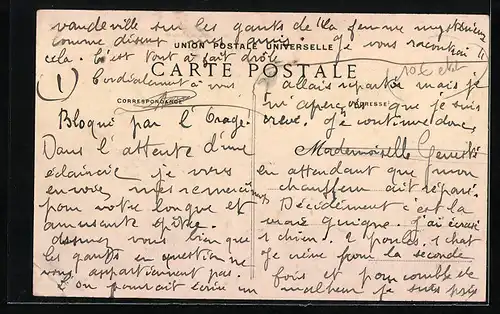 vaudeville sur les gants de "la femme mystérieuse"
comme disent mes amis. Je vous raconterai
UNION POSTALE UNIVERSELLE
cela. C'est tout à fait drôle
CARTE POSTALE
1
Cordialement à vous
CORRESPONDANCE
ADRESSE
Bloqué par l'Orage.
Dans l'attente d'une
éclaircie je vous
envoie mes remerciements
pour votre longue et
amusante épître.
vous bien que
les gants en question ne
vous appartiennent pas.
on pourrait écrire un
allais repartir mais je
m'aperçois que je suis
crevé. Je continue donc,
Mademoiselle
en attendant que mon
chauffeur ait réparé.
Décidément c'est la
vraie guigne. J'ai écrasé
1 chien. 2 poules. 1 chat
Je crève pour la seconde
fois et pour comble de
malheur je suis pris